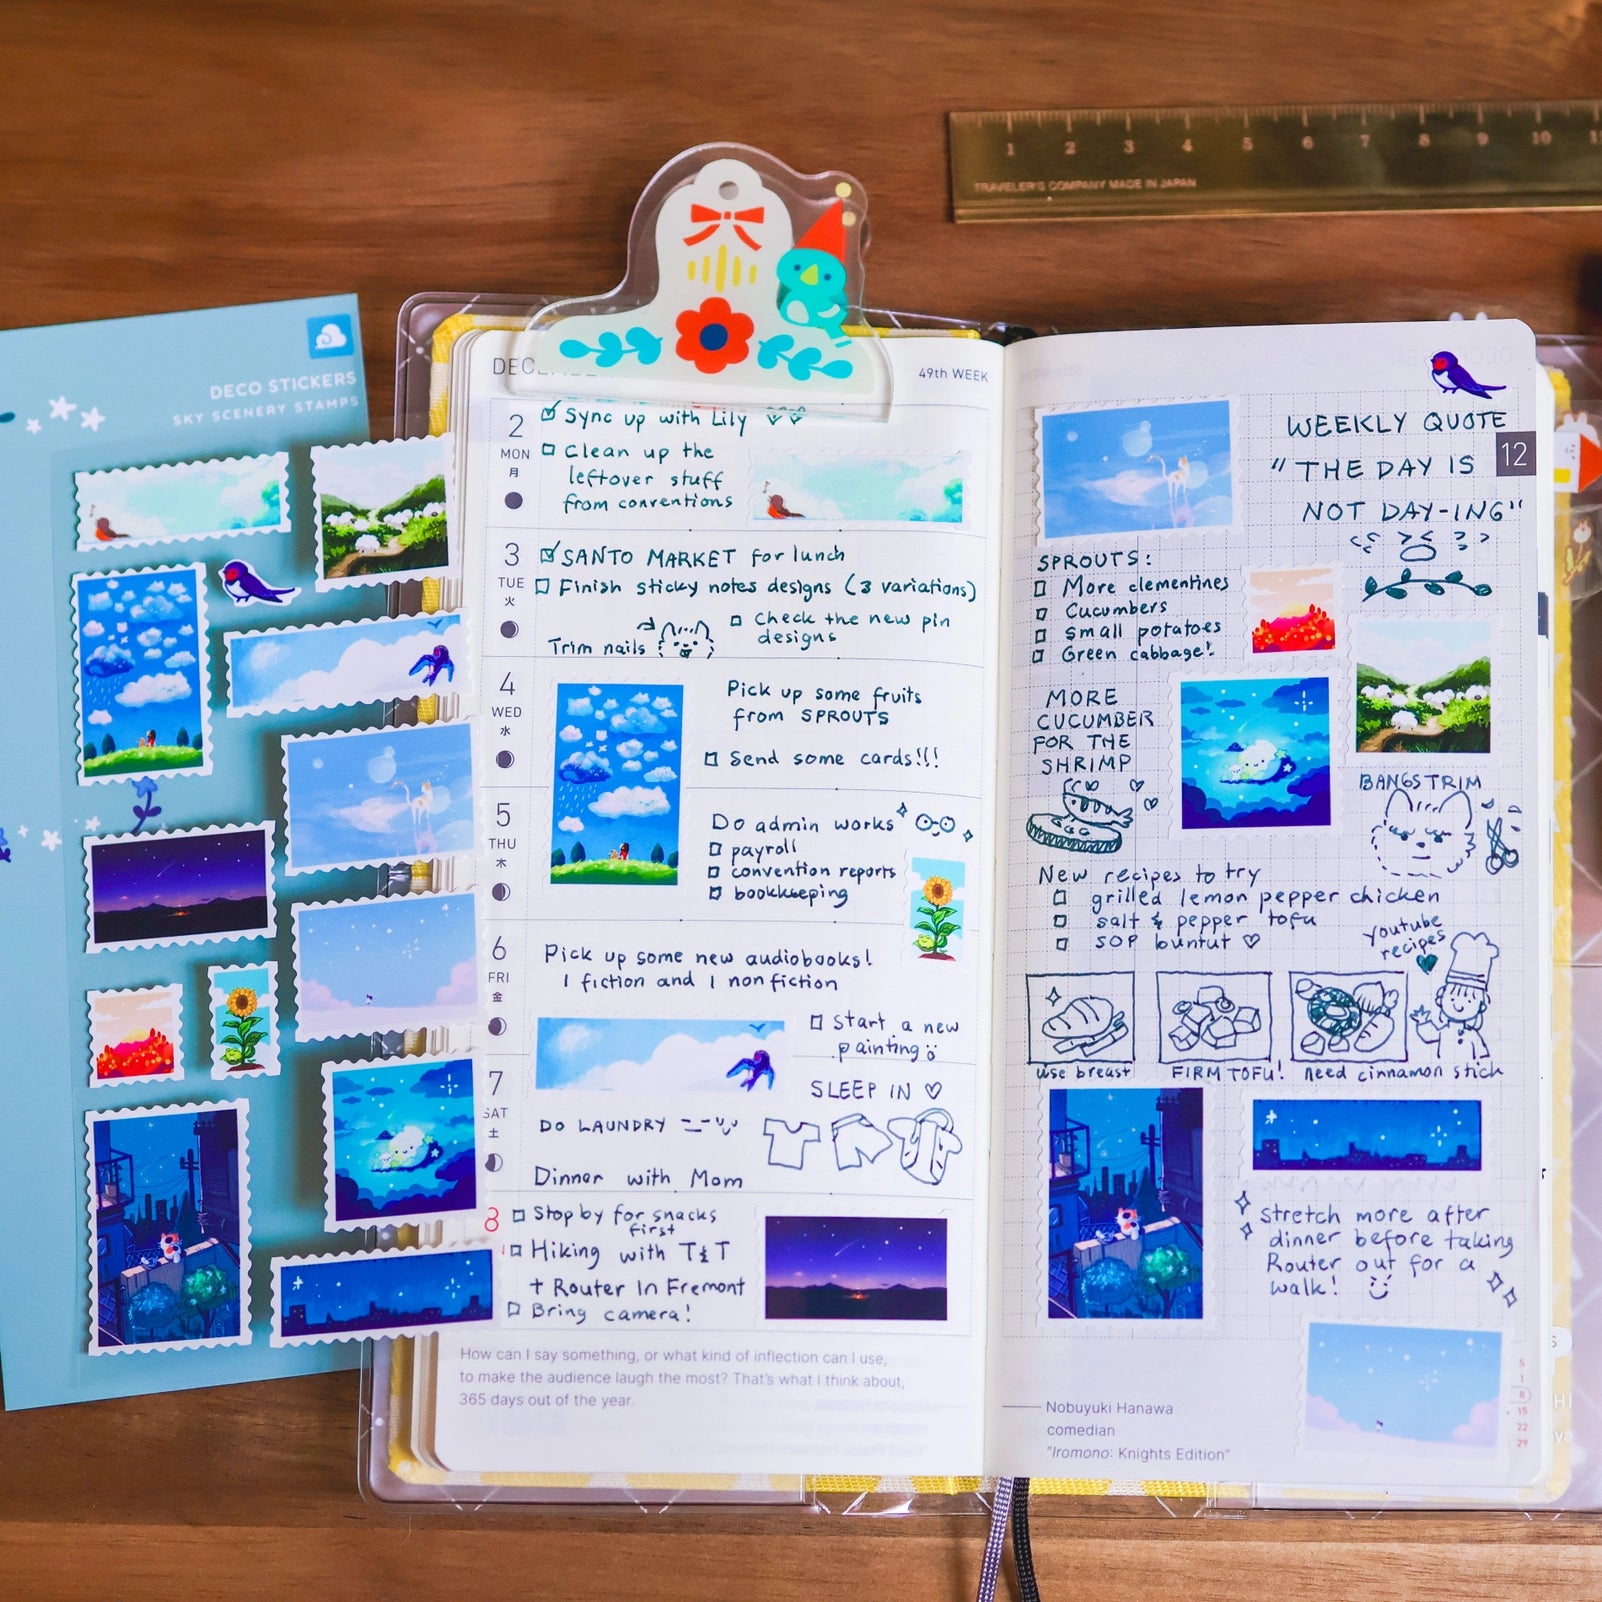 1 2 3 4 5 6 7 8 9 10
TRAVELER'S COMPANY MADE IN JAPAN
DECO STICKERS
SKY SCENERY STAMPS
49th WEEK
2
MON
月
Sync up with Lily
Clean up the
leftover stuff
from conventions
3
TUE
火
SANTO MARKET for lunch
Finish sticky notes designs (3 variations)
Trim nails
Check the new pin
designs
4
WED
水
Pick up some fruits
from SPROUTS
Send some cards!!!
5
THU
木
Do admin works
payroll
convention reports
bookkeeping
6
FRI
金
Pick up some new audiobooks!
1 fiction and 1 nonfiction
Start a new
painting
7
SAT
土
SLEEP IN ♡
DO LAUNDRY
Dinner with Mom
8
Stop by for snacks
first
Hiking with T&T
+ Router In Fremont
Bring camera!
How can I say something, or what kind of inflection can I use,
to make the audience laugh the most? That's what I think about,
365 days out of the year.
WEEKLY QUOTE
"THE DAY IS
NOT DAY-ING"
12
SPROUTS:
More clementines
Cucumbers
small potatoes
Green cabbage!
MORE
CUCUMBER
FOR THE
SHRIMP
BANGS TRIM
New recipes to try
grilled lemon pepper chicken
salt & pepper tofu
SOP buntut ♡
youtube
recipes
use breast
FIRM TOFU!
need cinnamon stick
stretch more after
dinner before taking
Router out for a
walk!
Nobuyuki Hanawa
comedian
"Iromono: Knights Edition"
5
1
8
15
22
29